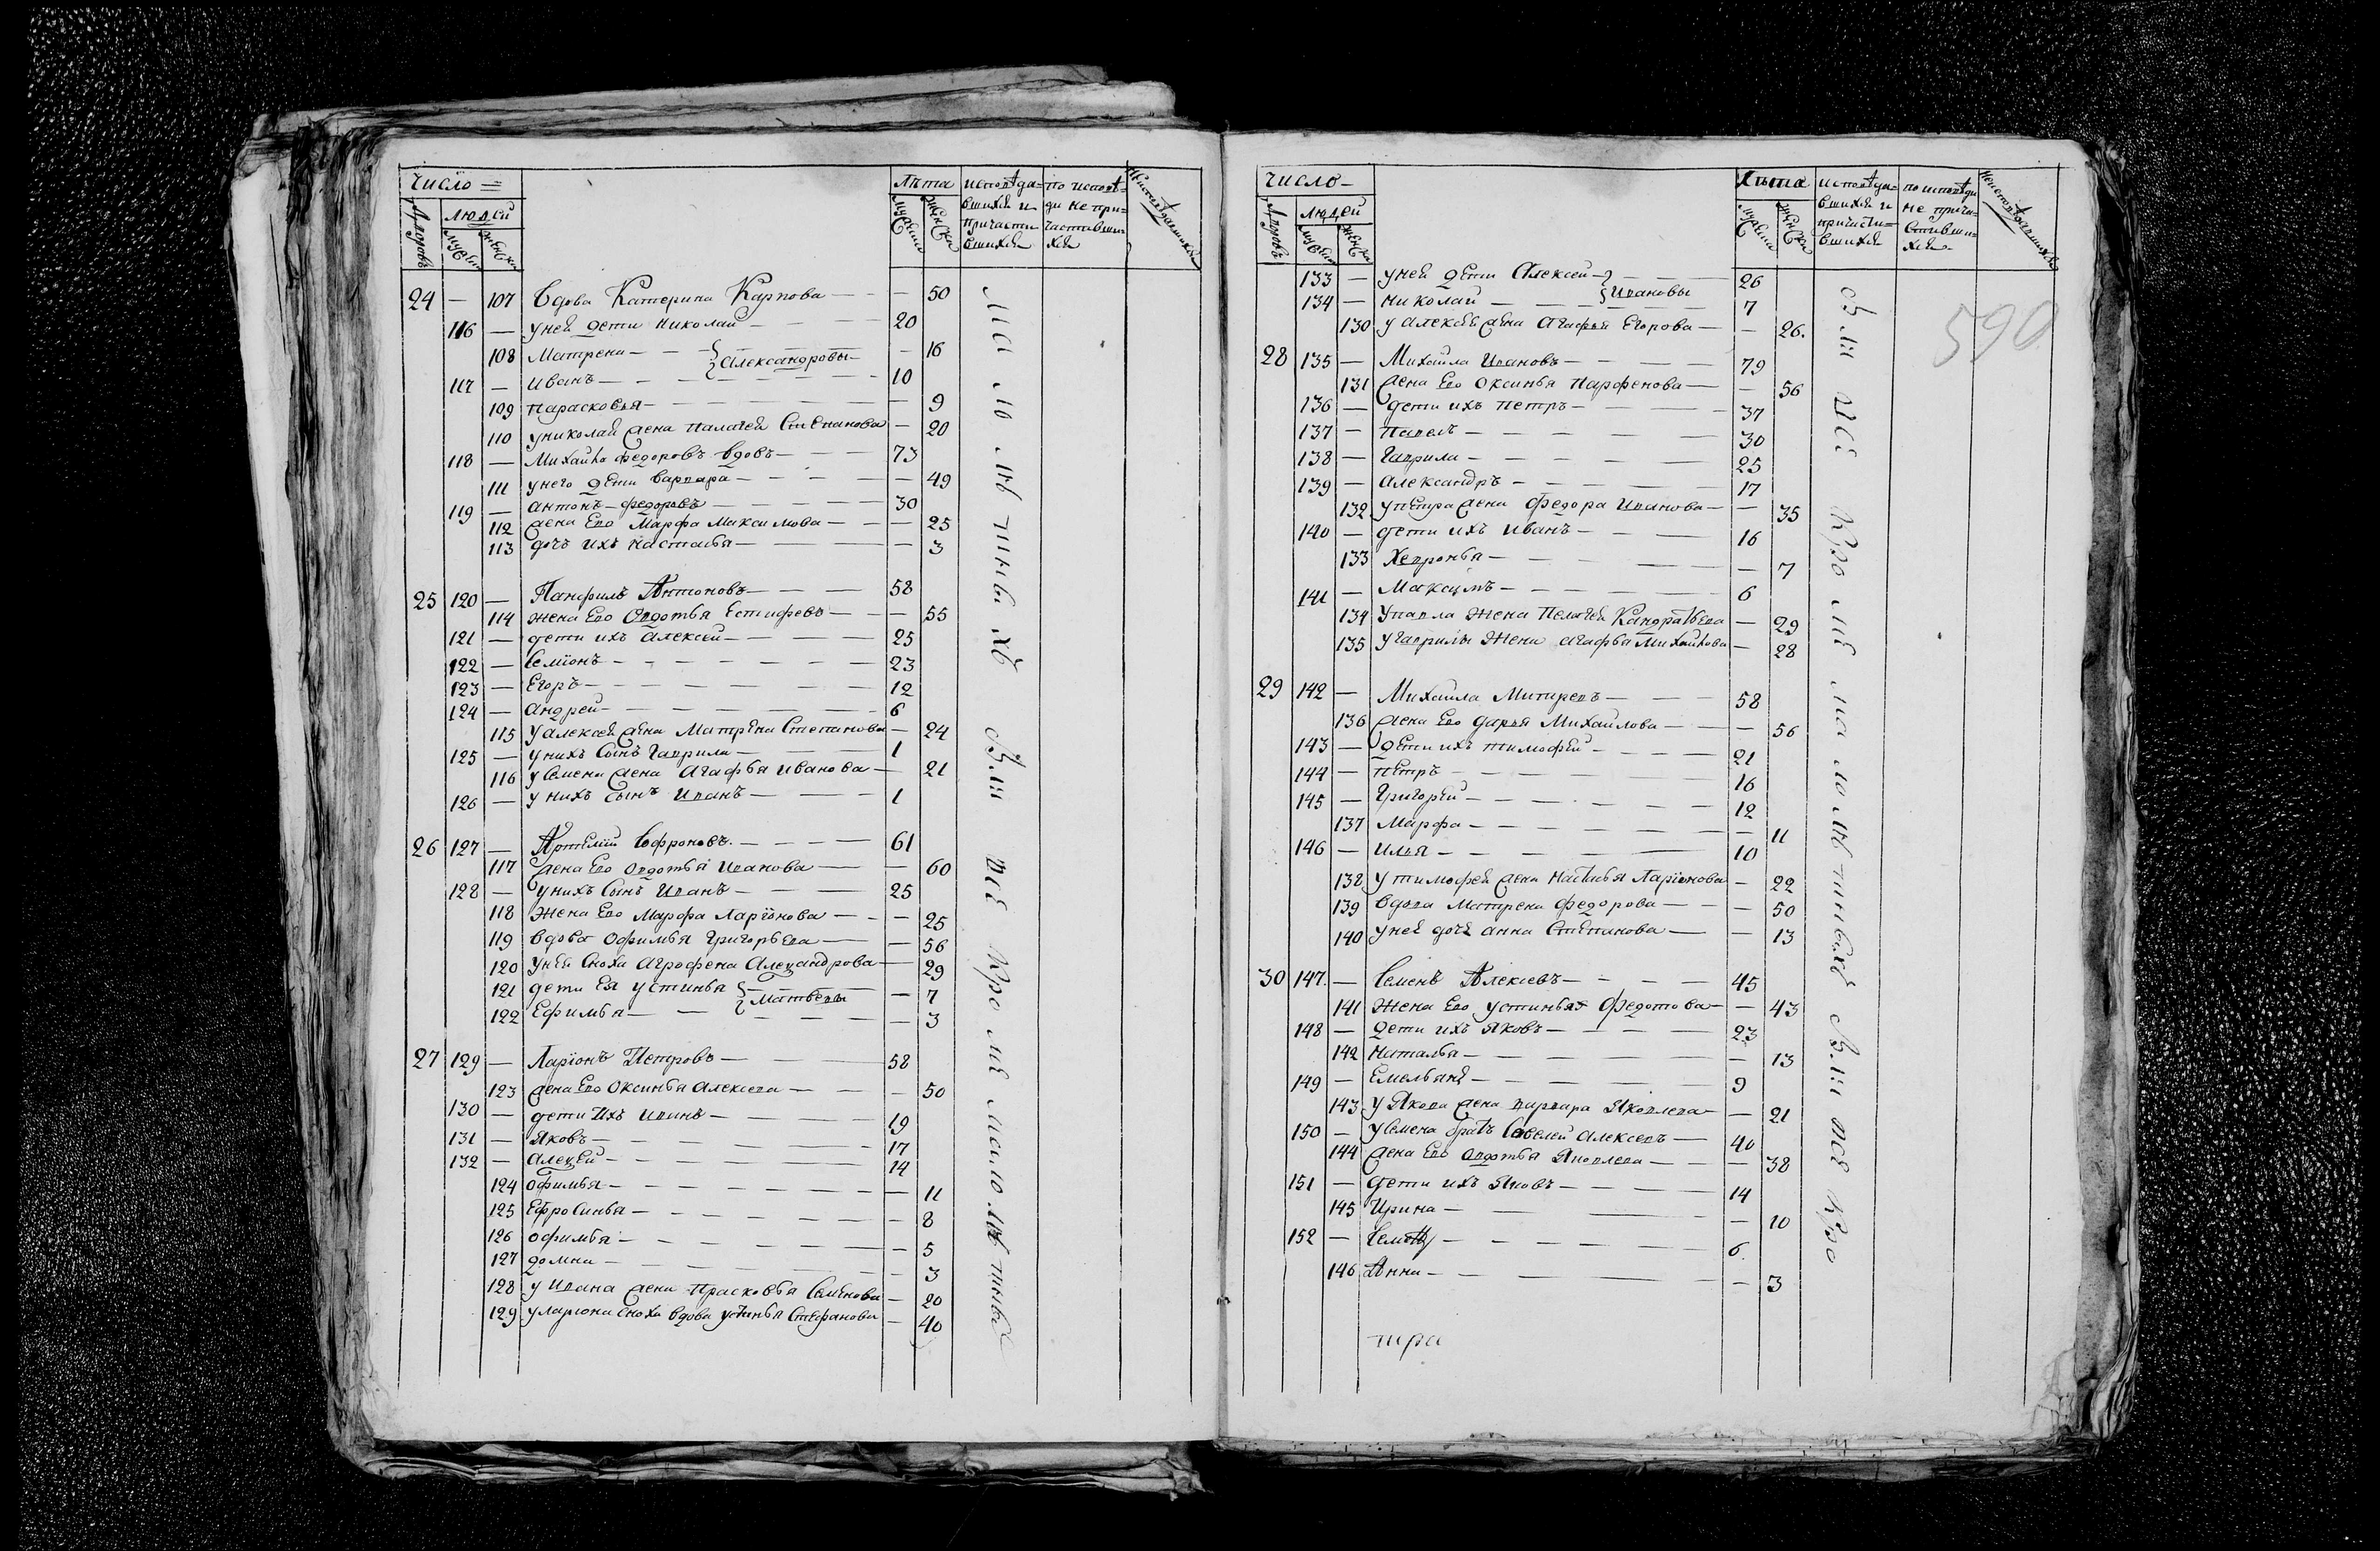 Число
Дворовъ
Людей
мужска
женска
Лѣта
мужска
женска
исповѣда=
вшихся и
причасти
вшихся
по исповѣ=
ди не при=
частивши
хся
Неисповѣдавшихся
24 — 107 Вдова Катерина Карпова — — 50
116 — у ней дети Николай — 20
108 Матрена — } Александровы — — 16
117 — Иванъ — 10
109 Парасковья — — 9
110 у николая жена Палагея Степанова — 20
118 — Михайло Федоровъ вдовъ — 73
111 у него дети Варвара — — 49
119 — антонъ — федоровъ — 30
112 жена Его Марфа Максимова — — 25
113 дочь ихъ Настасья — — 3
25 120 — Панфилъ Антоновъ — 58
114 жена Его Овдотья Естифеева — — 55
121 — дети ихъ Алексей — 25
122 — Семіонъ — 23
123 — Егоръ — 12
124 — андрей — 6
115 У алексея жена Матрена Степанова — 24
125 — у нихъ Сынъ Гаврила — 1
116 у Семена жена Агафья Иванова — 21
126 — у нихъ Сынъ Иванъ — 1
26 127 — Артемій Софроновъ — 61
117 жена Его Овдотья Иванова — — 60
128 — у нихъ Сынъ Иванъ — 25
118 жена Его Марфа Ларіонова — — 25
119 вдова Офимья Григорьева — — 56
120 у ней Сноха Агрофена Александрова — 29
121 дети Ея устинья } Матвеевы — 7
122 Ефимья — — 3
27 129 — Ларіонъ Петровъ — 58
123 жена Его Оксинья Алексеева — — 50
130 — дети Ихъ Иванъ — 19
131 — Яковъ — 17
132 — Алексей — 14
124 Офимья — — 11
125 Ефросинья — — 8
126 офимья — — 5
127 домна — — 3
128 у Ивана жена Прасковья Семенова — 20
129 у лариона сноха вдова устинья Стефанова — 40
малолѣтныхъ
В.ш все кроме малолѣтныхъ
Число
Дворовъ
Людей
мужска
женска
Лѣта
мужска
женска
исповѣда=
вшихся и
причасти=
вшихся
по исповѣди
не прича=
стивши=
хся
Неисповѣдавшихся
590
133 — у ней дети Алексей — } Ивановы 26
134 — николай — 7
130 у алексея жена Агафья Егорова — — 26.
28 135 — Михайла Ивановъ — 79
131 жена Его Оксинья Парфенова — — 56
136 — дети ихъ Петръ — 37
137 — Павелъ — 30
138 — Гаврила — 25
139 — Александръ — 17
132 у петра жена Федора Иванова — — 35
140 — дети ихъ Иванъ — 16
133 Хевронья — — 7
141 — Максимъ — 6
134 У павла жена Пелагея Кандратьева — 29
135 у Гаврилы жена агафья Михайлова — 28
29 142 — Михайла Митиревъ — 58
136 жена Его дарья Михайлова — — 56
143 — дети ихъ тимофей — 21
144 — петръ — 16
145 — Григорей — 12
137 Марфа — — 11
146 — илья — 10
138 у тимофея жена Настасья Ларіонова — 22
139 вдова Матрена Федорова — — 50
140 у ней дочь анна Степанова — — 13
30 147. — Семенъ Алексеевъ — 45
141 жена Его устинья Федотова — — 43
148 — дети ихъ Яковъ — 23
142 Наталья — — 13
149 — Емельянъ — 9
143 У Якова жена варвара Яковлева — — 21
150 — у Семена братъ Савелей Алексеевъ — 40
144 жена Его Овдотья Яковлева — — 38
151 — дети ихъ Яковъ — 14
145 Ирина — — 10
152 — Семенъ — 6
146 Анна — — 3
тра
В.ш все кроме малолѣтныхъ В.ш все кро